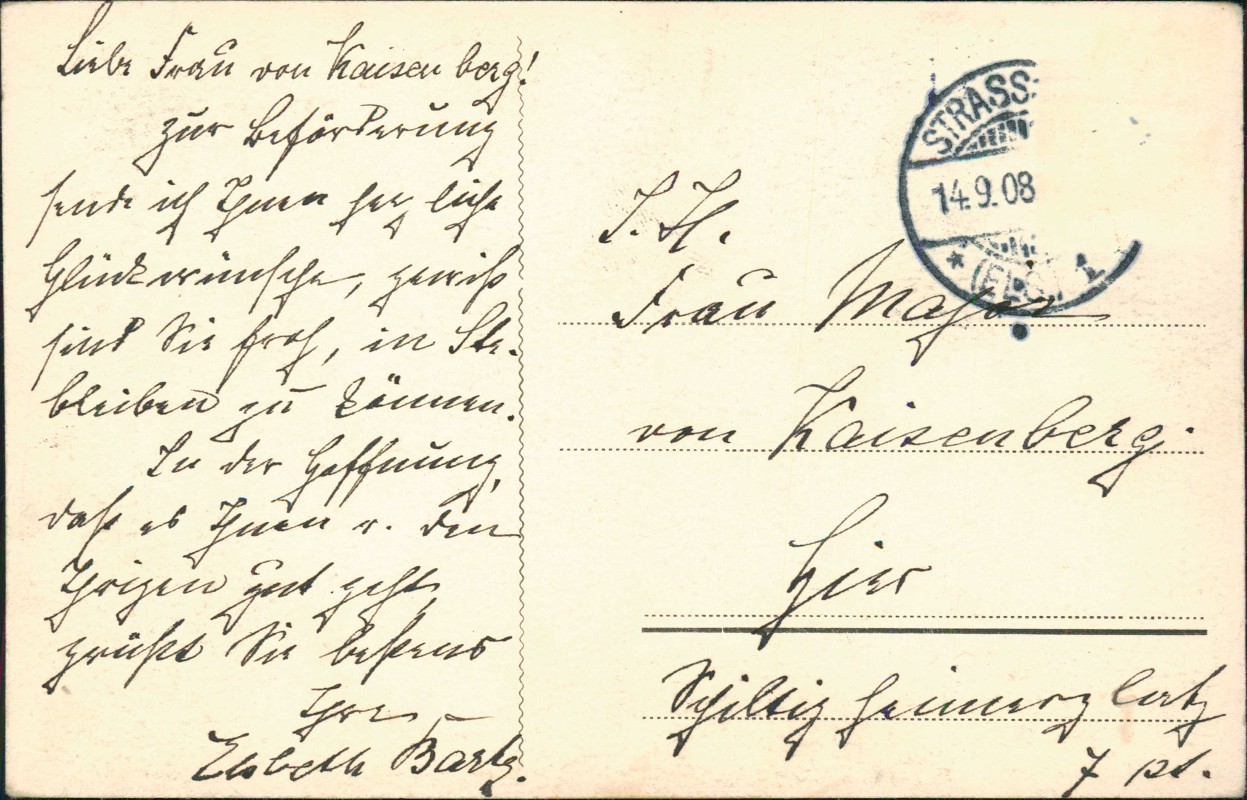 Liebe Frau von Kaisenberg!
zur Beförderung
sende ich Ihnen herzliche
Glückwünsche, gewiß
sind Sie froh, in Str.
bleiben zu können.
In der Hoffnung,
daß es Ihnen u. den
Ihrigen gut geht,
grüßt Sie bestens
Ihre
Elsbeth Bartz.
STRASS
14.9.08
(ELS) 1
*
Frau Major
von Kaisenberg.
Hier
Schiltigheimerplatz
7